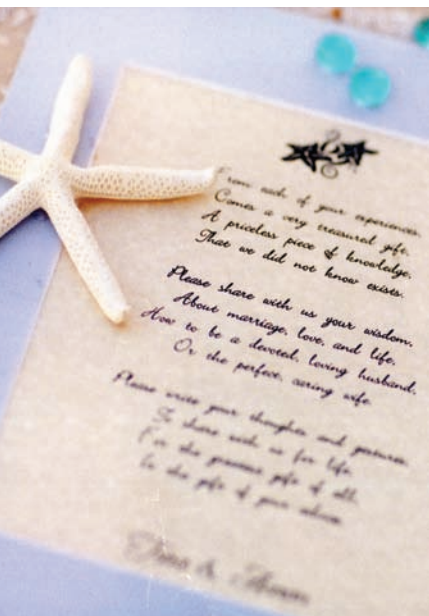 From each of your experiences,
Comes a very treasured gift,
A priceless piece of knowledge,
That we did not know exists.
Please share with us your wisdom,
About marriage, love, and life,
How to be a devoted, loving husband,
Or the perfect, caring wife.
Please write your thoughts and
To share with us for life,
For the precious gift of all,
Is the gift of your advice.
&